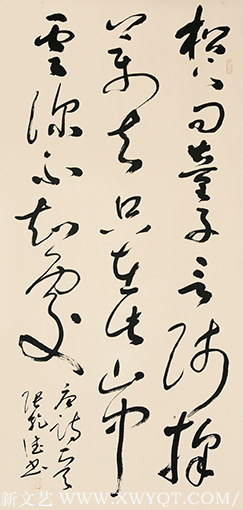 松下问童子言师採
药去只在此山中
云深不知处
唐诗一首
张德书
新文艺 - WWW.XWYQT.COM